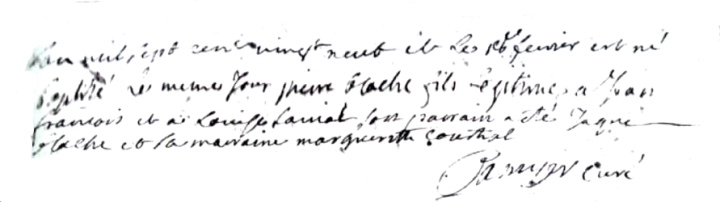 L'an mil sept cent vingt neuf et le 16e fevrier est né
baptisé le meme Jour pierre Stache fils legitime a Jean
francois et a Louise son parrain a eté Jaque
Stache et la marraine marguerite
curé